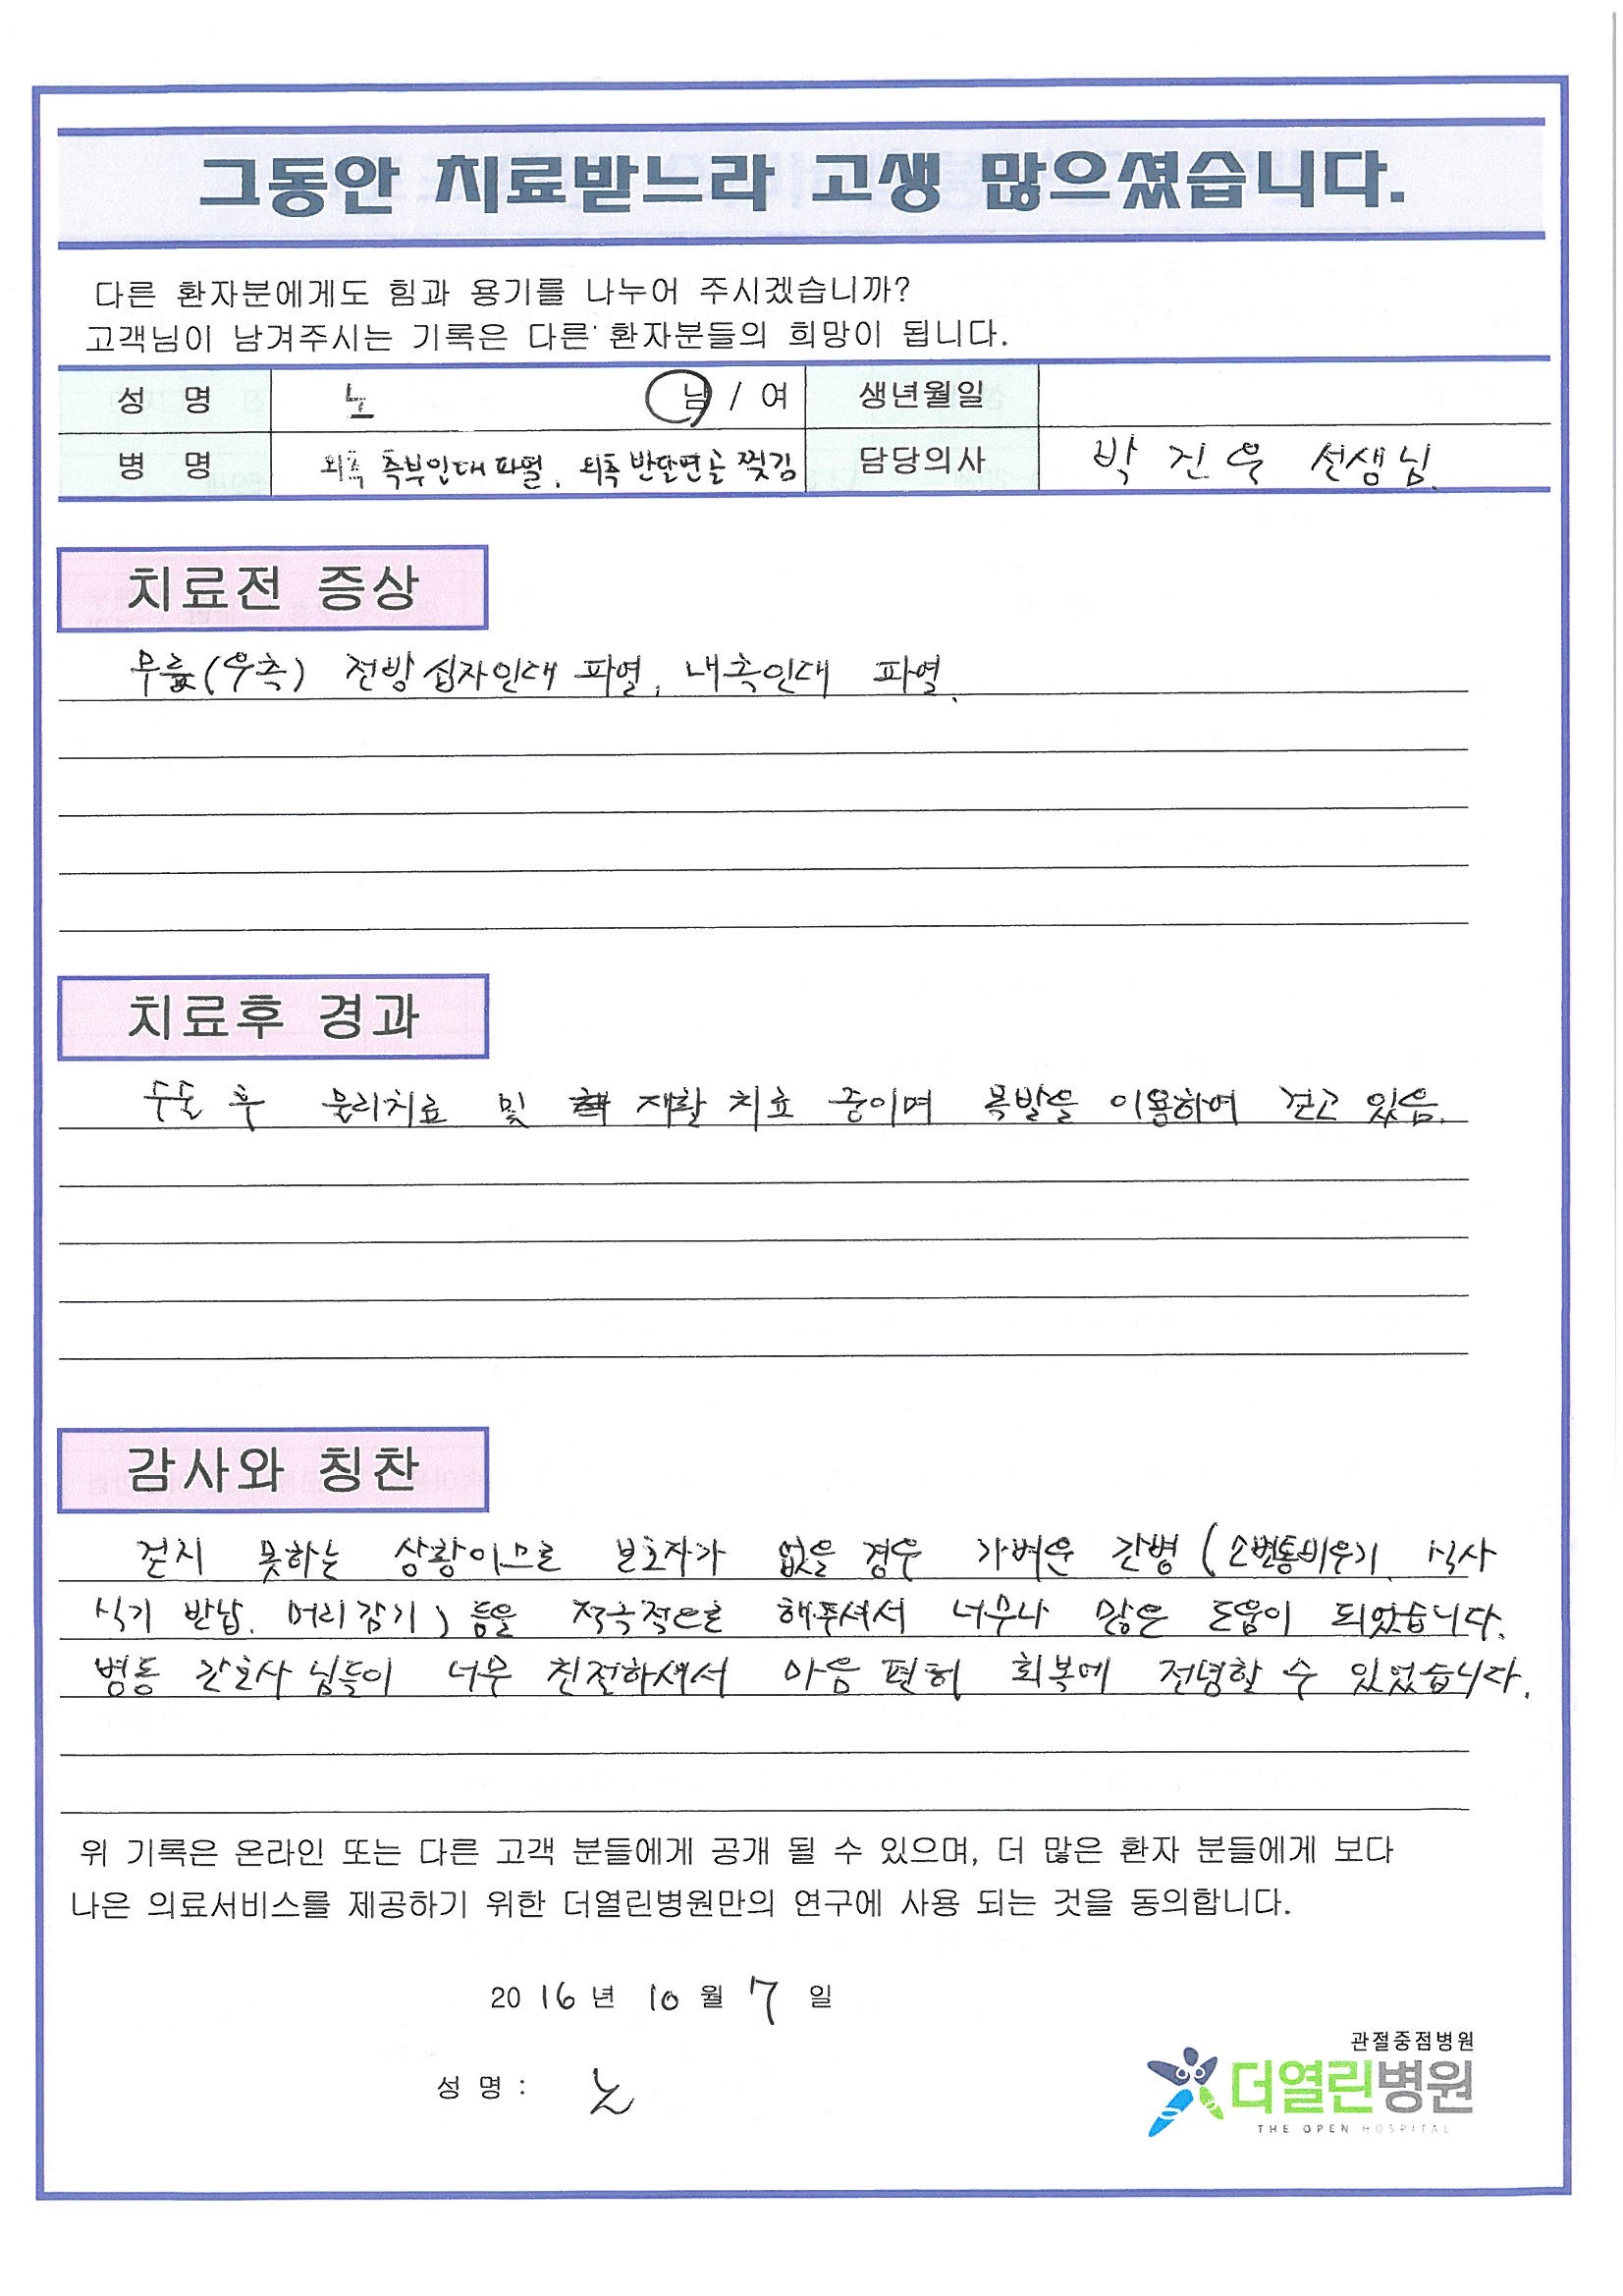 그동안 치료받느라 고생 많으셨습니다.
다른 환자분에게도 힘과 용기를 나누어 주시겠습니까?
고객님이 남겨주시는 기록은 다른 환자분들의 희망이 됩니다.
성 명 노 남 / 여 생년월일
병 명 외측 측부인대 파열, 외측 반달연골 찢김 담당의사 박진우 선생님.
치료전 증상
무릎(우측) 전방 십자인대 파열, 내측인대 파열.
치료후 경과
수술 후 물리치료 및 재활 치료 중이며 목발을 이용하여 걷고 있음.
감사와 칭찬
걷지 못하는 상황이므로 보호자가 없을 경우 가벼운 간병 (소변통비우기, 식사
식기 반납, 머리감기) 등을 적극적으로 해주셔서 너무나 많은 도움이 되었습니다.
병동 간호사님들이 너무 친절하셔서 마음 편히 회복에 전념할 수 있었습니다.
위 기록은 온라인 또는 다른 고객 분들에게 공개 될 수 있으며, 더 많은 환자 분들에게 보다
나은 의료서비스를 제공하기 위한 더열린병원만의 연구에 사용 되는 것을 동의합니다.
2016년 10월 7일
성 명 : 노
관절중점병원
더열린병원
THE OPEN HOSPITAL